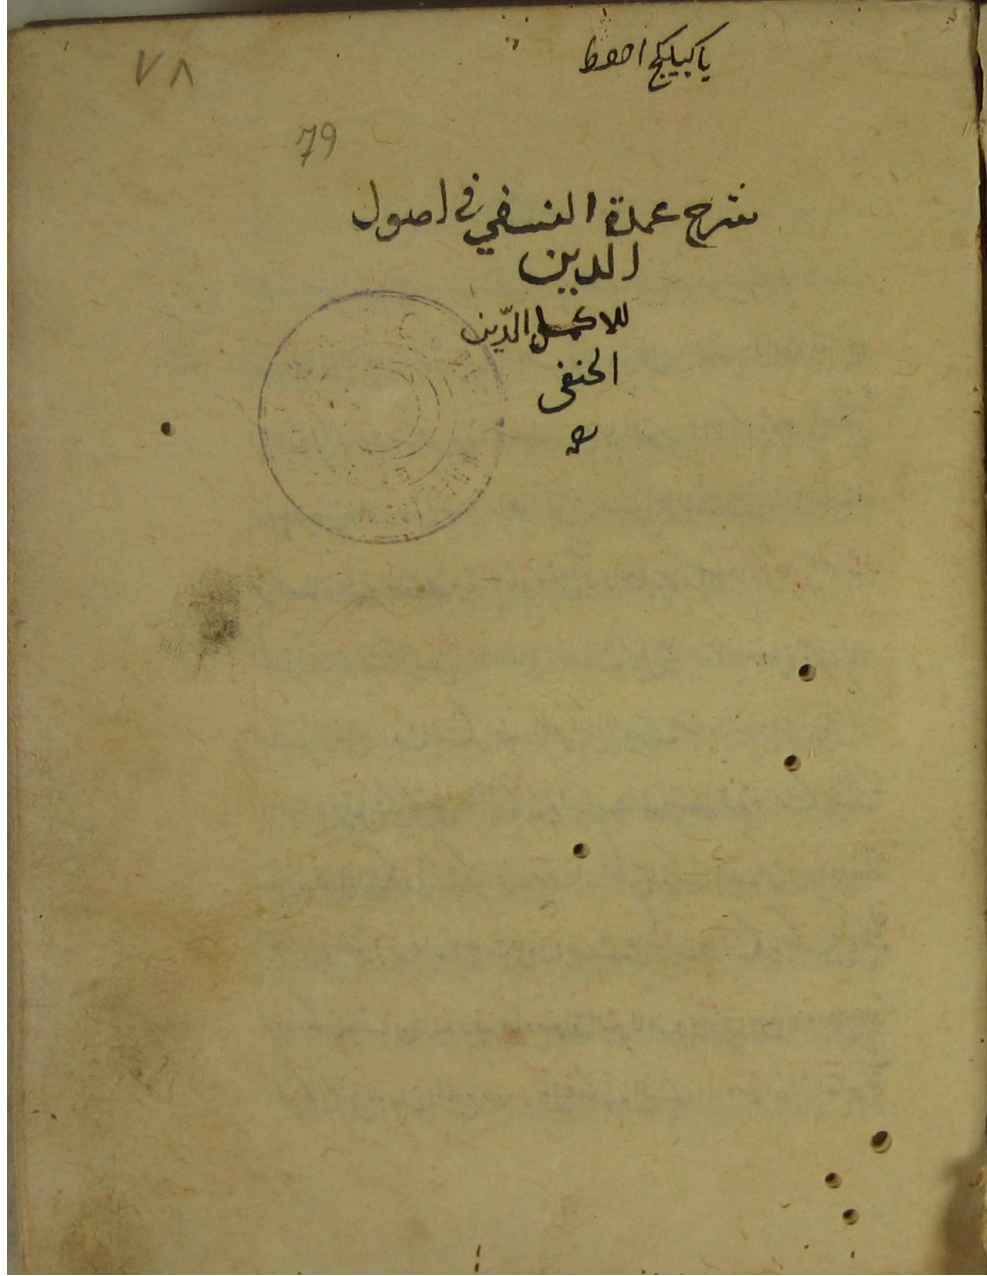 يا كبيكج احفظ
٧٨
79
شرح عمدة النسفي في اصول
الدين
للاكمل الدّين
الحنفى